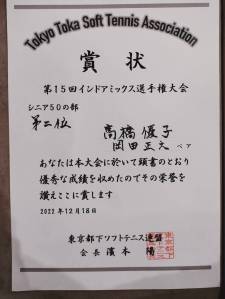 Tokyo Toka Soft Tennis Association
賞状
第15回インドアミックス選手権大会
シニア50の部
第二位
高橋優子
岡田正大 ペア
あなたは本大会に於いて頭書のとおり
優秀な成績を収めたのでその栄誉を
讃えここに賞します
2022年12月18日
東京都下ソフトテニス連盟
会長 濱本 陽